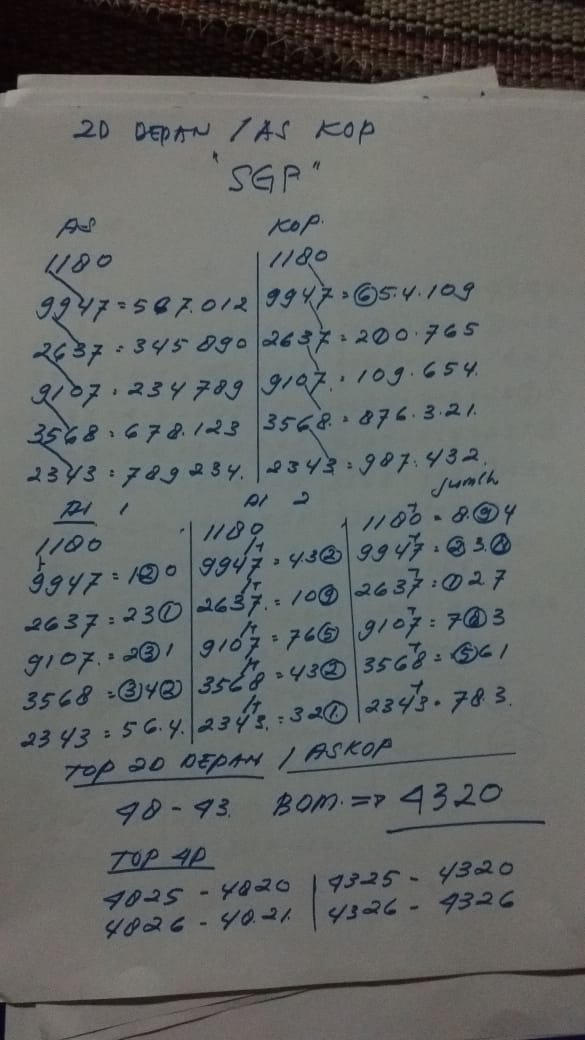 2D DEPAN / AS KOP
"SGP"
AS
1180
9947 = 567.012
2637 = 345 890
9107 = 234 789
3568 = 678.123
2343 = 789 234.
KOP.
1180
9947 = 654.109
2637 = 200.765
9107. = 109.654.
3568. = 876.3.21.
2343 = 987.432.
AI 1
1180
9947 = 120
2637 = 231
9107. = 231
3568 = 342
2343 = 56.4.
AI 2
1180
9947 = 432
2637. = 109
9107 = 765
3568 = 432
2343. = 321.
Jumlh
1180 = 8.94
2637 = 127
3568 = 561
2343 = 78.3.
TOP 2D DEPAN / ASKOP
48 - 43. BOM. => 4320
TOP 4D
4825 - 4820 | 4325 - 4320
4826 - 48.21. | 4326 - 4326